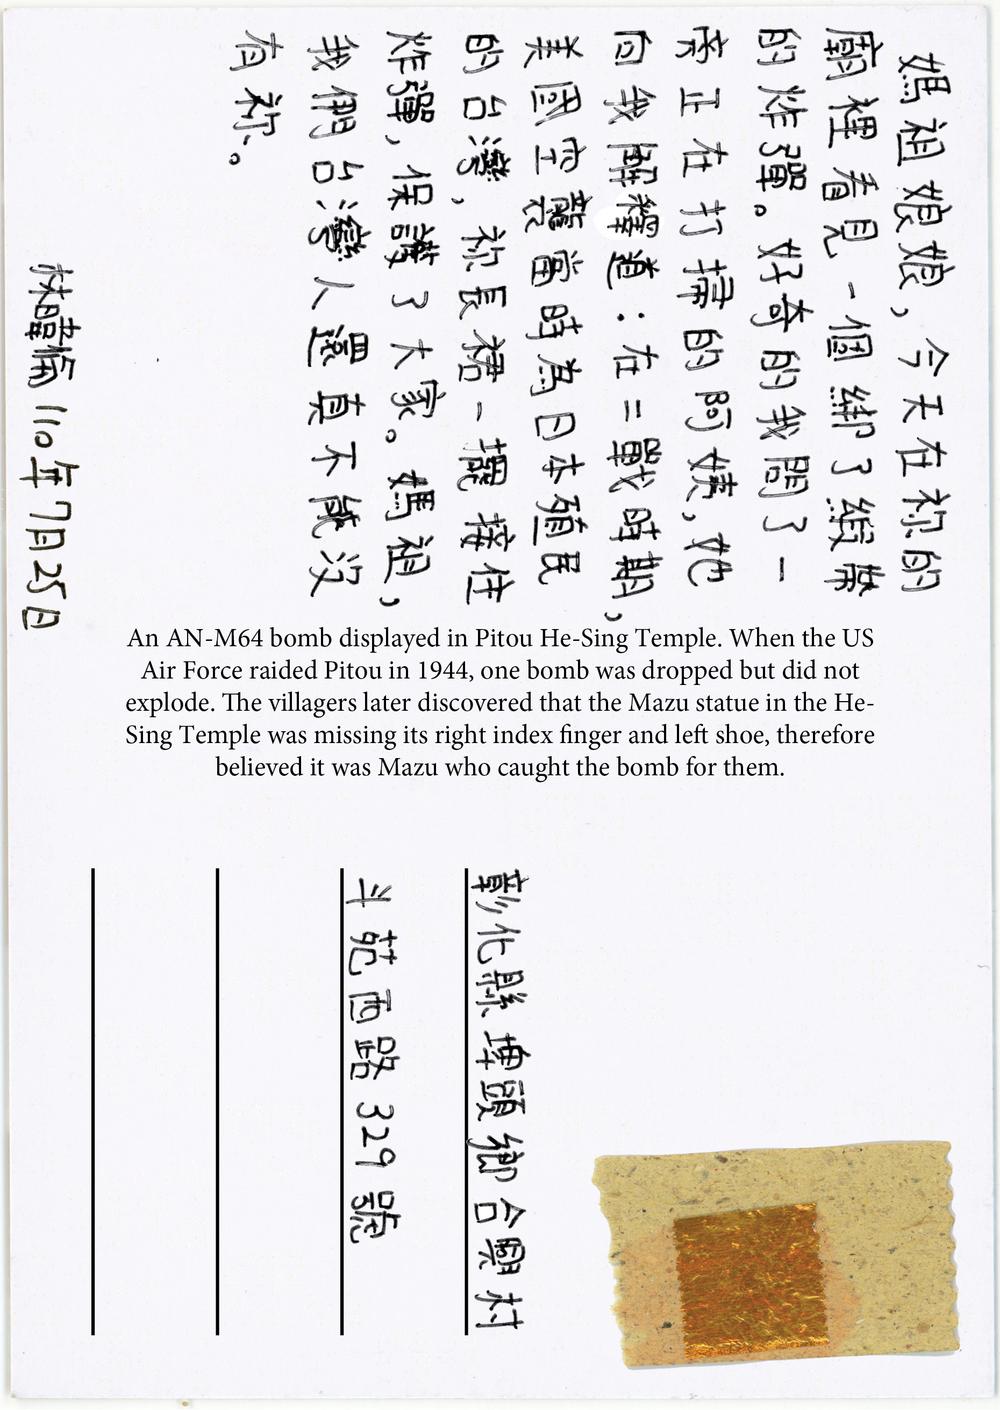 媽祖娘娘，今天在祢的
廟裡看見一個綁了緞帶
的炸彈。好奇的我問了一
旁正在打掃的阿姨，她
向我解釋道：在二戰時期，
美國空襲當時為日本殖民
的台灣，祢長裙一攏接住
炸彈，保護了大家。媽祖，
我們台灣人還真不能沒
有祢。
110年7月25日
An AN-M64 bomb displayed in Pitou He-Sing Temple. When the US
Air Force raided Pitou in 1944, one bomb was dropped but did not
explode. The villagers later discovered that the Mazu statue in the He-
Sing Temple was missing its right index finger and left shoe, therefore
believed it was Mazu who caught the bomb for them.
彰化縣埤頭鄉合興村
斗苑西路329號